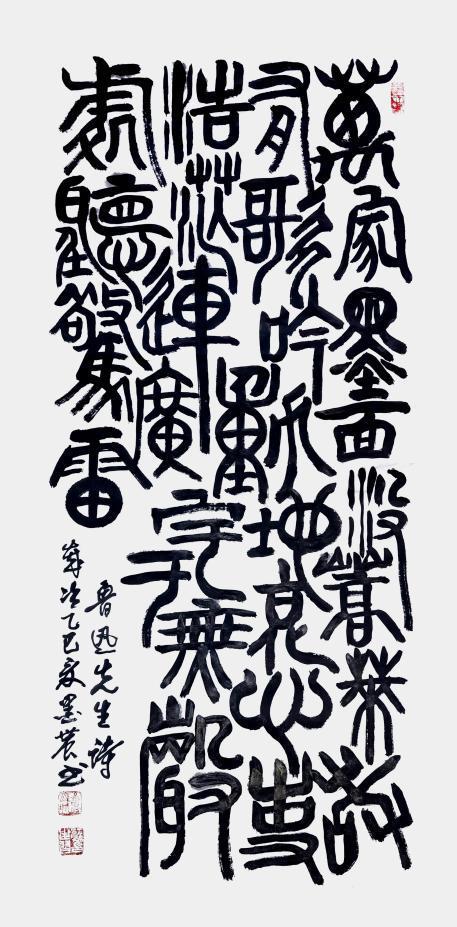 萬家墨面沒蒿萊敢
有歌吟動地哀心事
浩茫連廣宇於無聲
處聽驚雷
魯迅先生詩
歲次乙巳墨農书